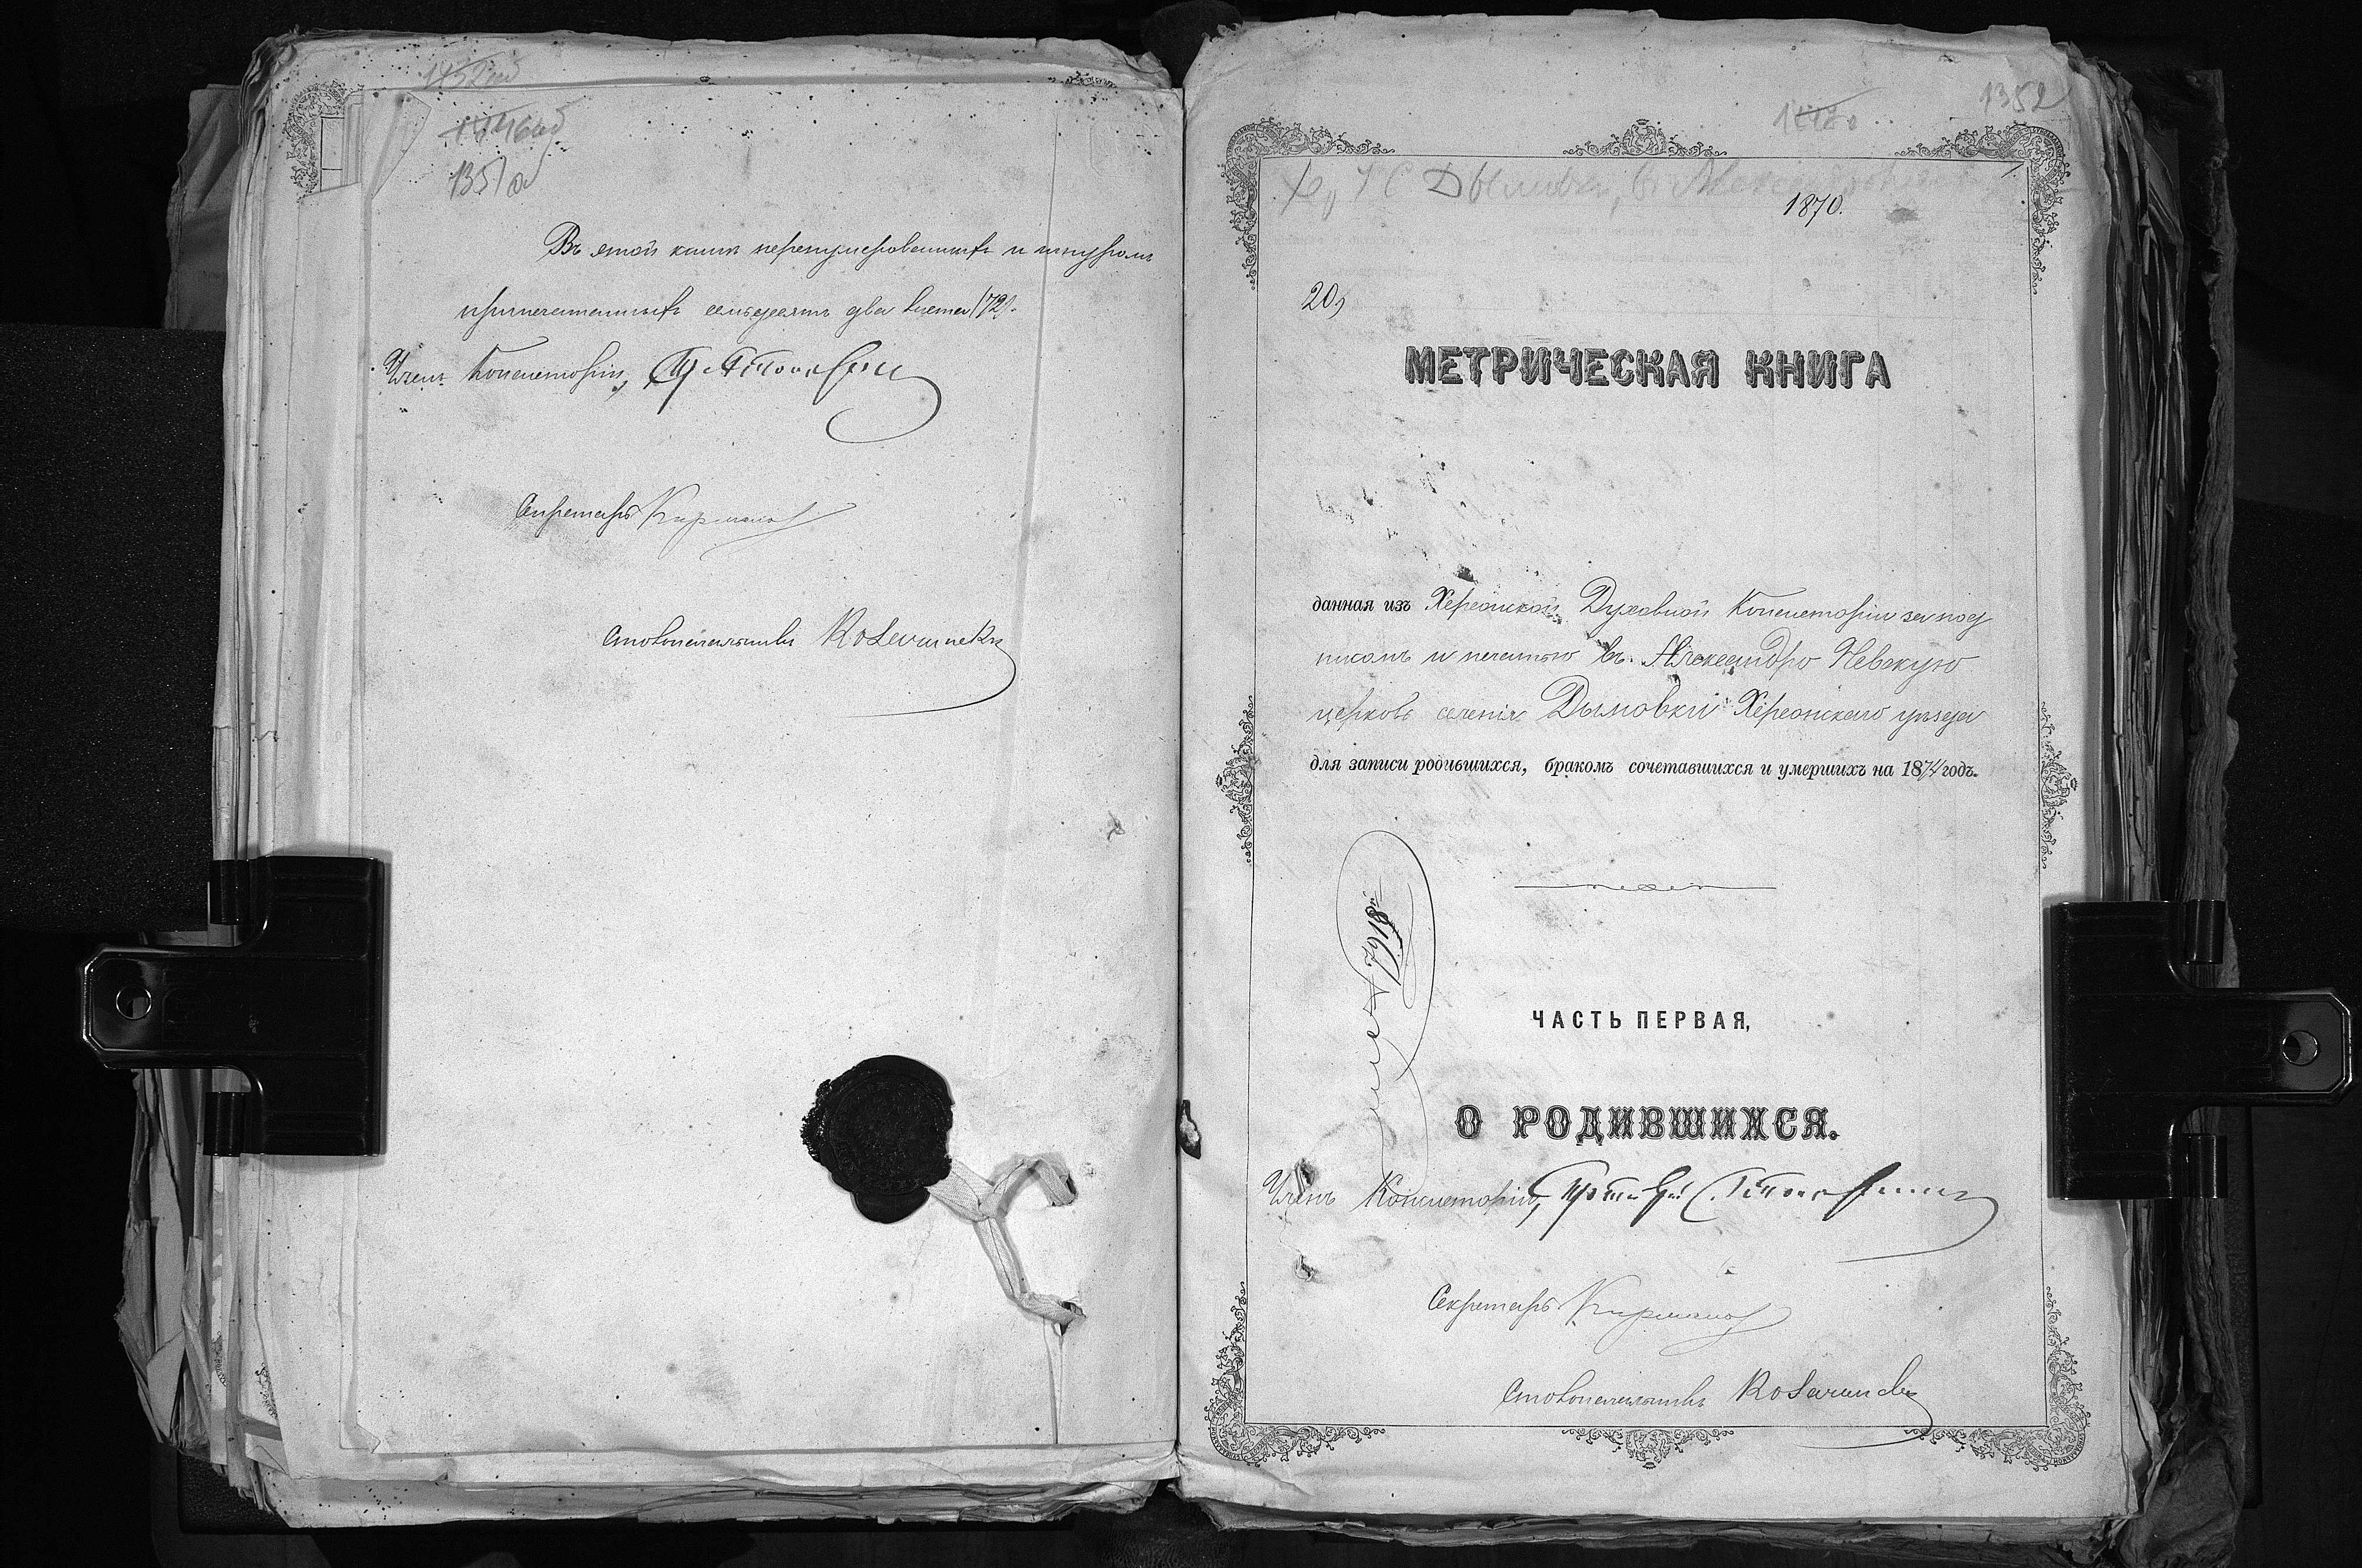 1351 об
Въ этой книгѣ перенумерованныхъ и шнуромъ
припечатанныхъ семьдесятъ два листа (72).
Членъ Консисторіи,
Секретарь
Столоначальникъ
1352
1870.
20,
МЕТРИЧЕСКАЯ КНИГА
данная изъ Херсонской Духовной Консисторіи за под
писомъ и печатью въ Александро Невскую
церковь селенія Дымовки Херсонскаго уѣзда
для записи родившихся, бракомъ сочетавшихся и умершихъ на 1874 годъ.
ЧАСТЬ ПЕРВАЯ,
О РОДИВШИХСЯ.
Членъ Консисторіи,
Секретарь
Столоначальникъ